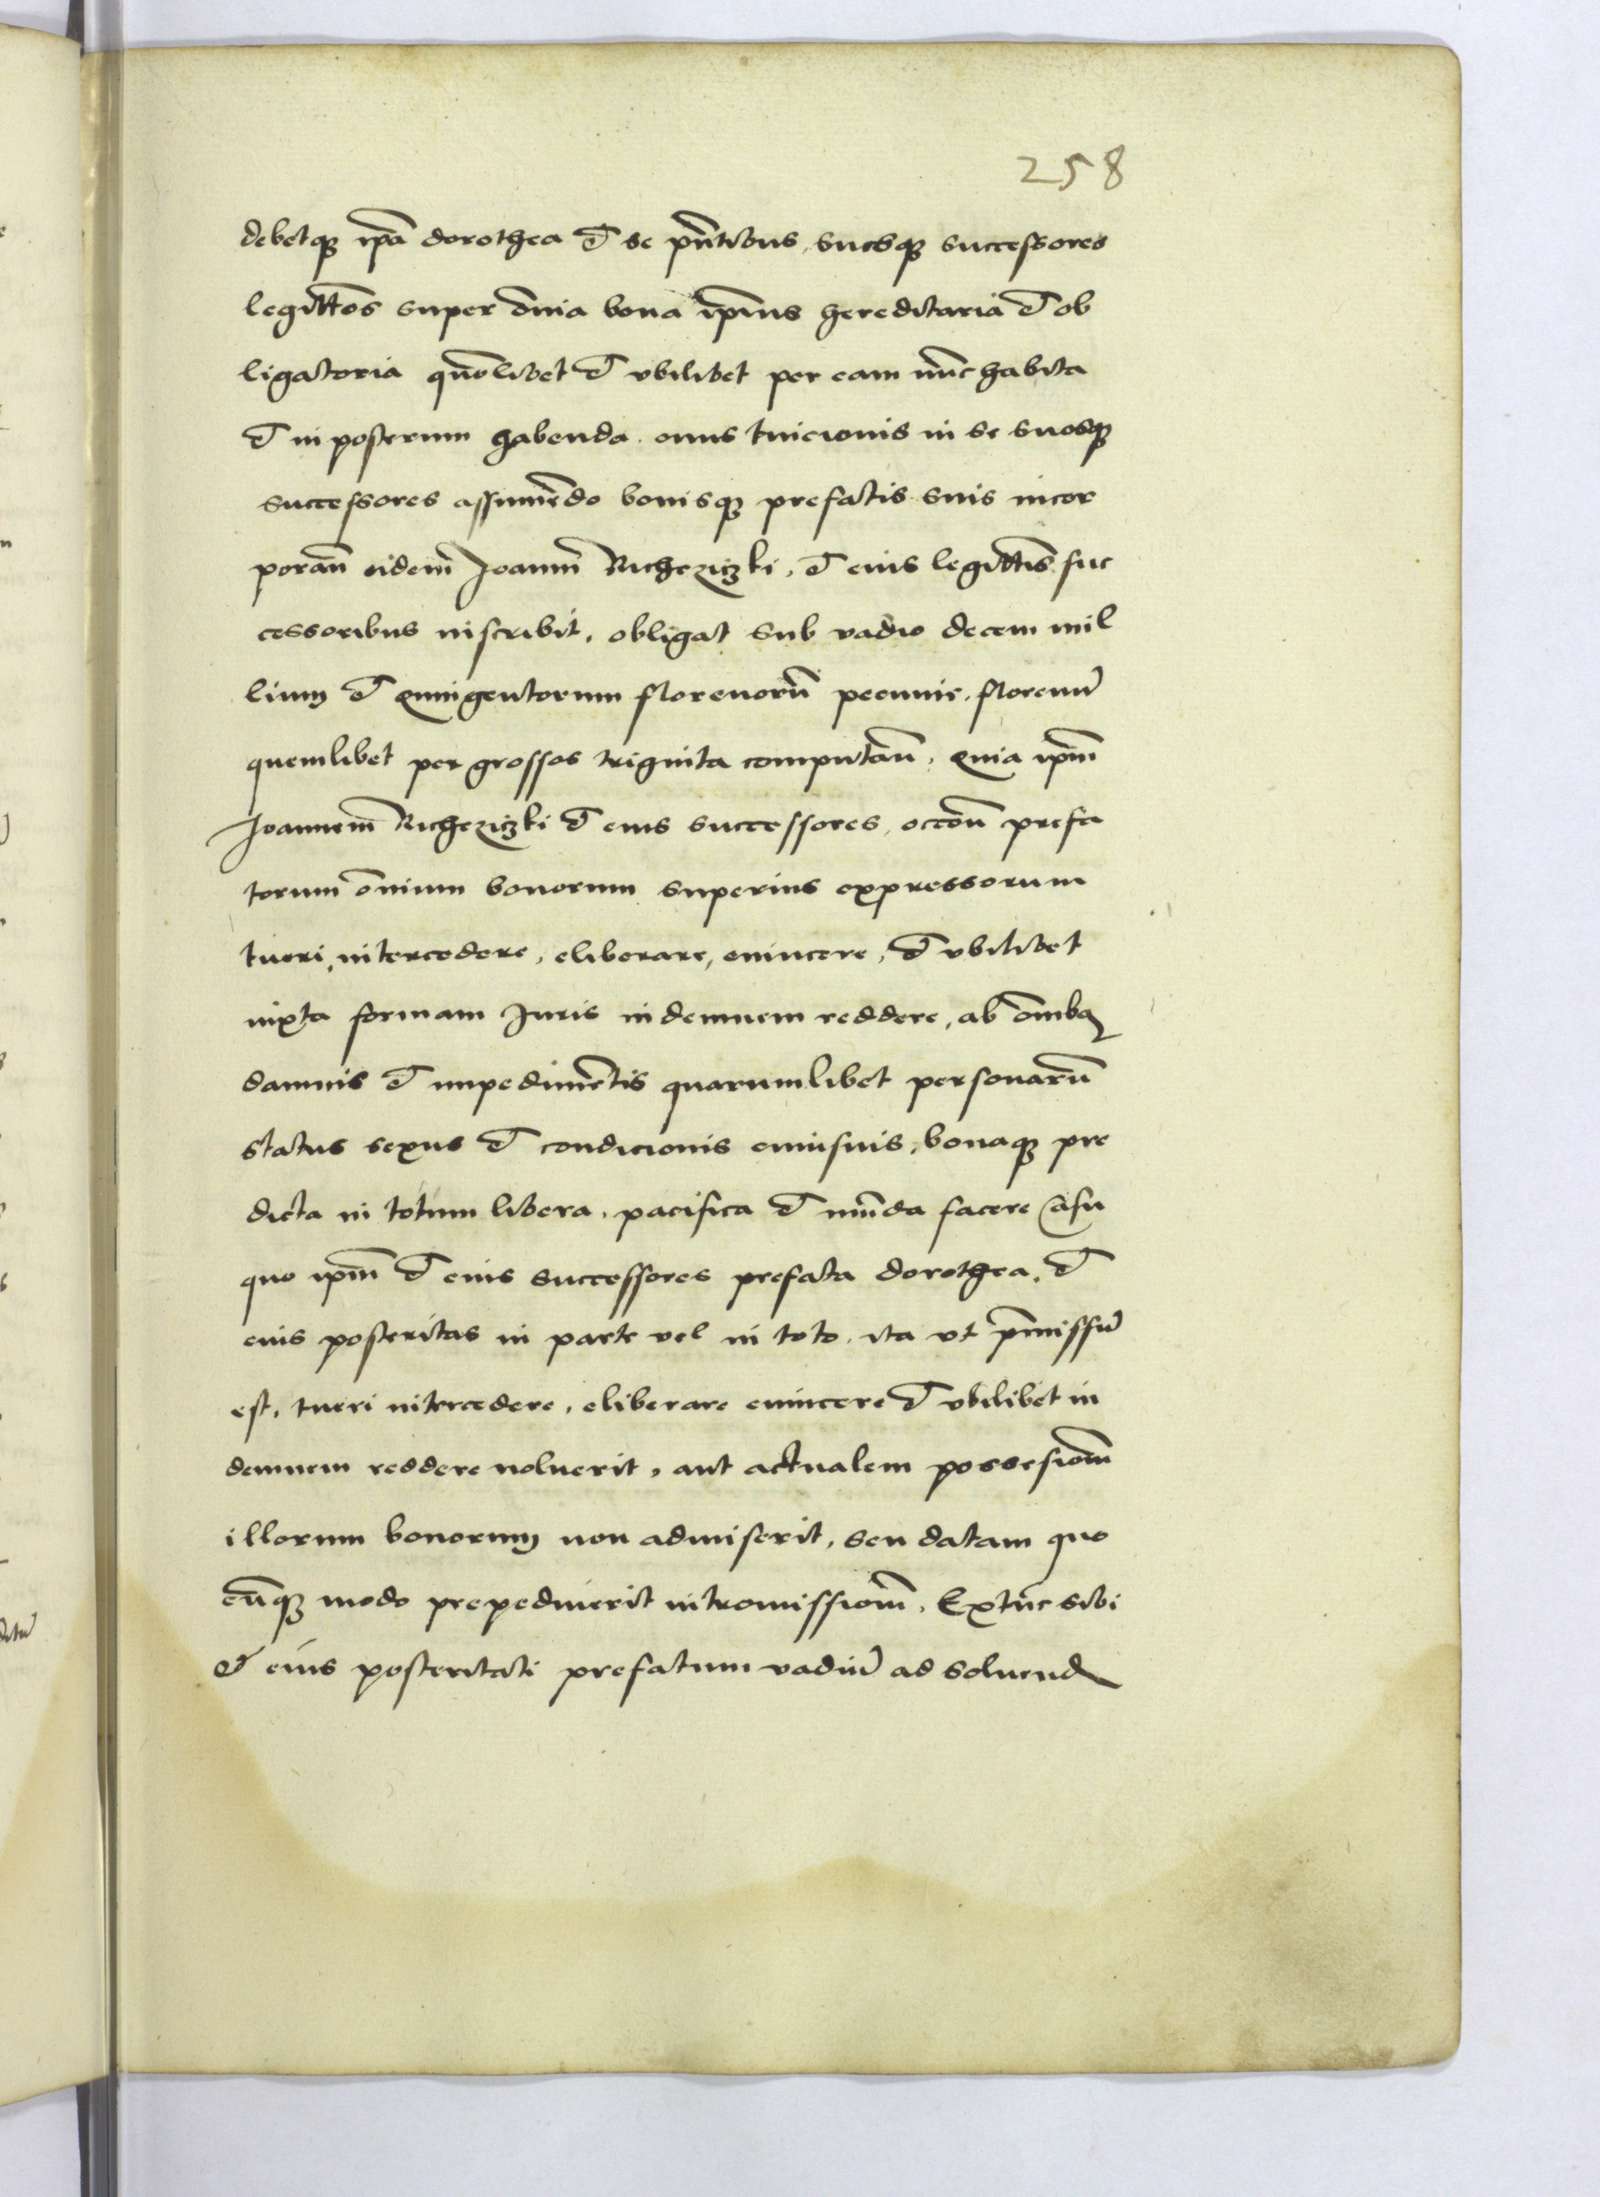 258
debetqꝫ ip̄a dorothea et se p̄ntibus suosqꝫ successores
legitt̄os super om̄ia bona ip̄ius hereditaria et ob
ligatoria quōlibet et vbilibet per eam nūc habita
et in posterum habenda. onus tuicionis in se suosqꝫ
successores assumēdo bonisqꝫ prefatis suis incor
porañ eidem̄ Joannī Richczickj, et eius legitt̄is suc
cessoribus inscribit, obligat sub vadio decem mil
lium et quingentorum florenorū pecunie. florenū
quemlibet per grossos triginta computañ, Quia ip̄m
Joannem̄ Richczickj et eius successores, occōne prefa
torum ōnium bonorum superius expressorum
tueri, intercedere, eliberare, euincere, et vbilibet
iuxta formam Juris indemnem reddere, ab ōmībꝫ
damnis et impedimētis quarumlibet personarū
status sexus et condicionis cuiusuis, bonaqꝫ pre
dicta in totum libera, pacifica et mūda facere Casu
quo ip̄m et eius successores prefata dorothea, et
eius posteritas in parte vel in toto, ita vt p̄missū
est, tueri intercedere, eliberare euincere et vbilibet in
demnem reddere noluerit, aut actualem possesionem̄
illorum bonorum non admiserit, seu datam quo
cūqꝫ modo prepediuerit intromissionem̄, Extūc sibi
et eius posteritati prefatum vadiū ad soluend